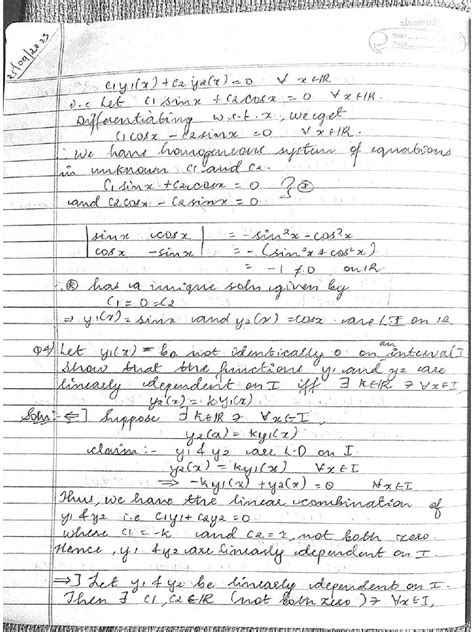 25/09/2023
c₁y₁(x) + c₂y₂(x) = 0 ∀ x∈IR
i.e Let c₁ sinx + c₂cosx = 0 ∀ x∈IR.
Differentiating w.r.t. x, we get
c₁cosx - c₂sinx = 0 ∀ x∈IR.
∴ We have homogeneous system of equations
in unknown c₁ and c₂.
c₁sinx + c₂cosx = 0
and c₂cosx - c₂sinx = 0
| sinx cosx | = -sin²x - cos²x
| cosx -sinx | = -(sin²x + cos²x)
= -1 ≠ 0 on IR
has a unique soln given by
c₁ = 0 = c₂
⇒ y₁(x) = sinx and y₂(x) = cosx are LI on IR
Q4) Let y₁(x) be not identically 0 on an interval I
show that the functions y₁ and y₂ are
linearly dependent on I iff ∃ k∈IR ∋ ∀x∈I,
y₂(x) = ky₁(x)
Soln:- ⇐] Suppose ∃ k∈IR ∋ ∀x∈I
y₂(x) = ky₁(x)
claim:- y₁ & y₂ are L.D on I.
y₂(x) = ky₁(x) ∀x∈I
⇒ -ky₁(x) + y₂(x) = 0 ∀x∈I
Thus, we have the linear combination of
y₁ & y₂ i.e c₁y₁ + c₂y₂ = 0
where c₁ = -k and c₂ = 1, not both zero.
Hence, y₁ & y₂ are linearly dependent on I.
⇒] Let y₁ & y₂ be linearly dependent on I.
Then ∃ c₁, c₂∈IR (not both zero) ∋ ∀x∈I,